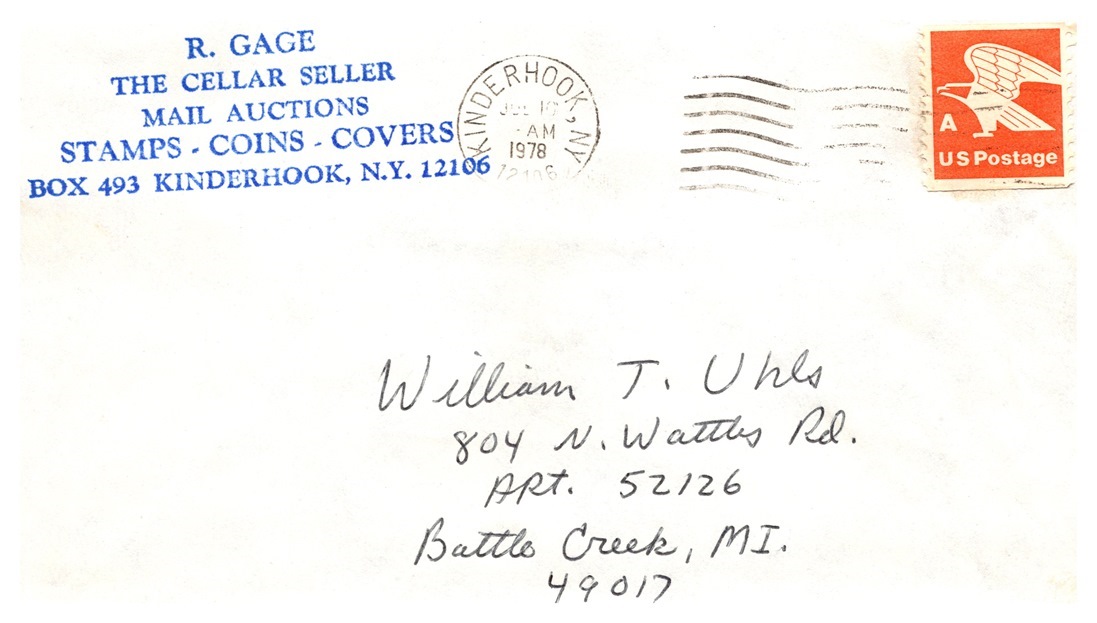 R. GAGE
THE CELLAR SELLER
MAIL AUCTIONS
STAMPS - COINS - COVERS
BOX 493 KINDERHOOK, N.Y. 12106
KINDERHOOK, NY
AM
1978
12106
A
US Postage
William T. Uhls
804 N. Wattles Rd.
APT. 52126
Battle Creek, MI.
49017